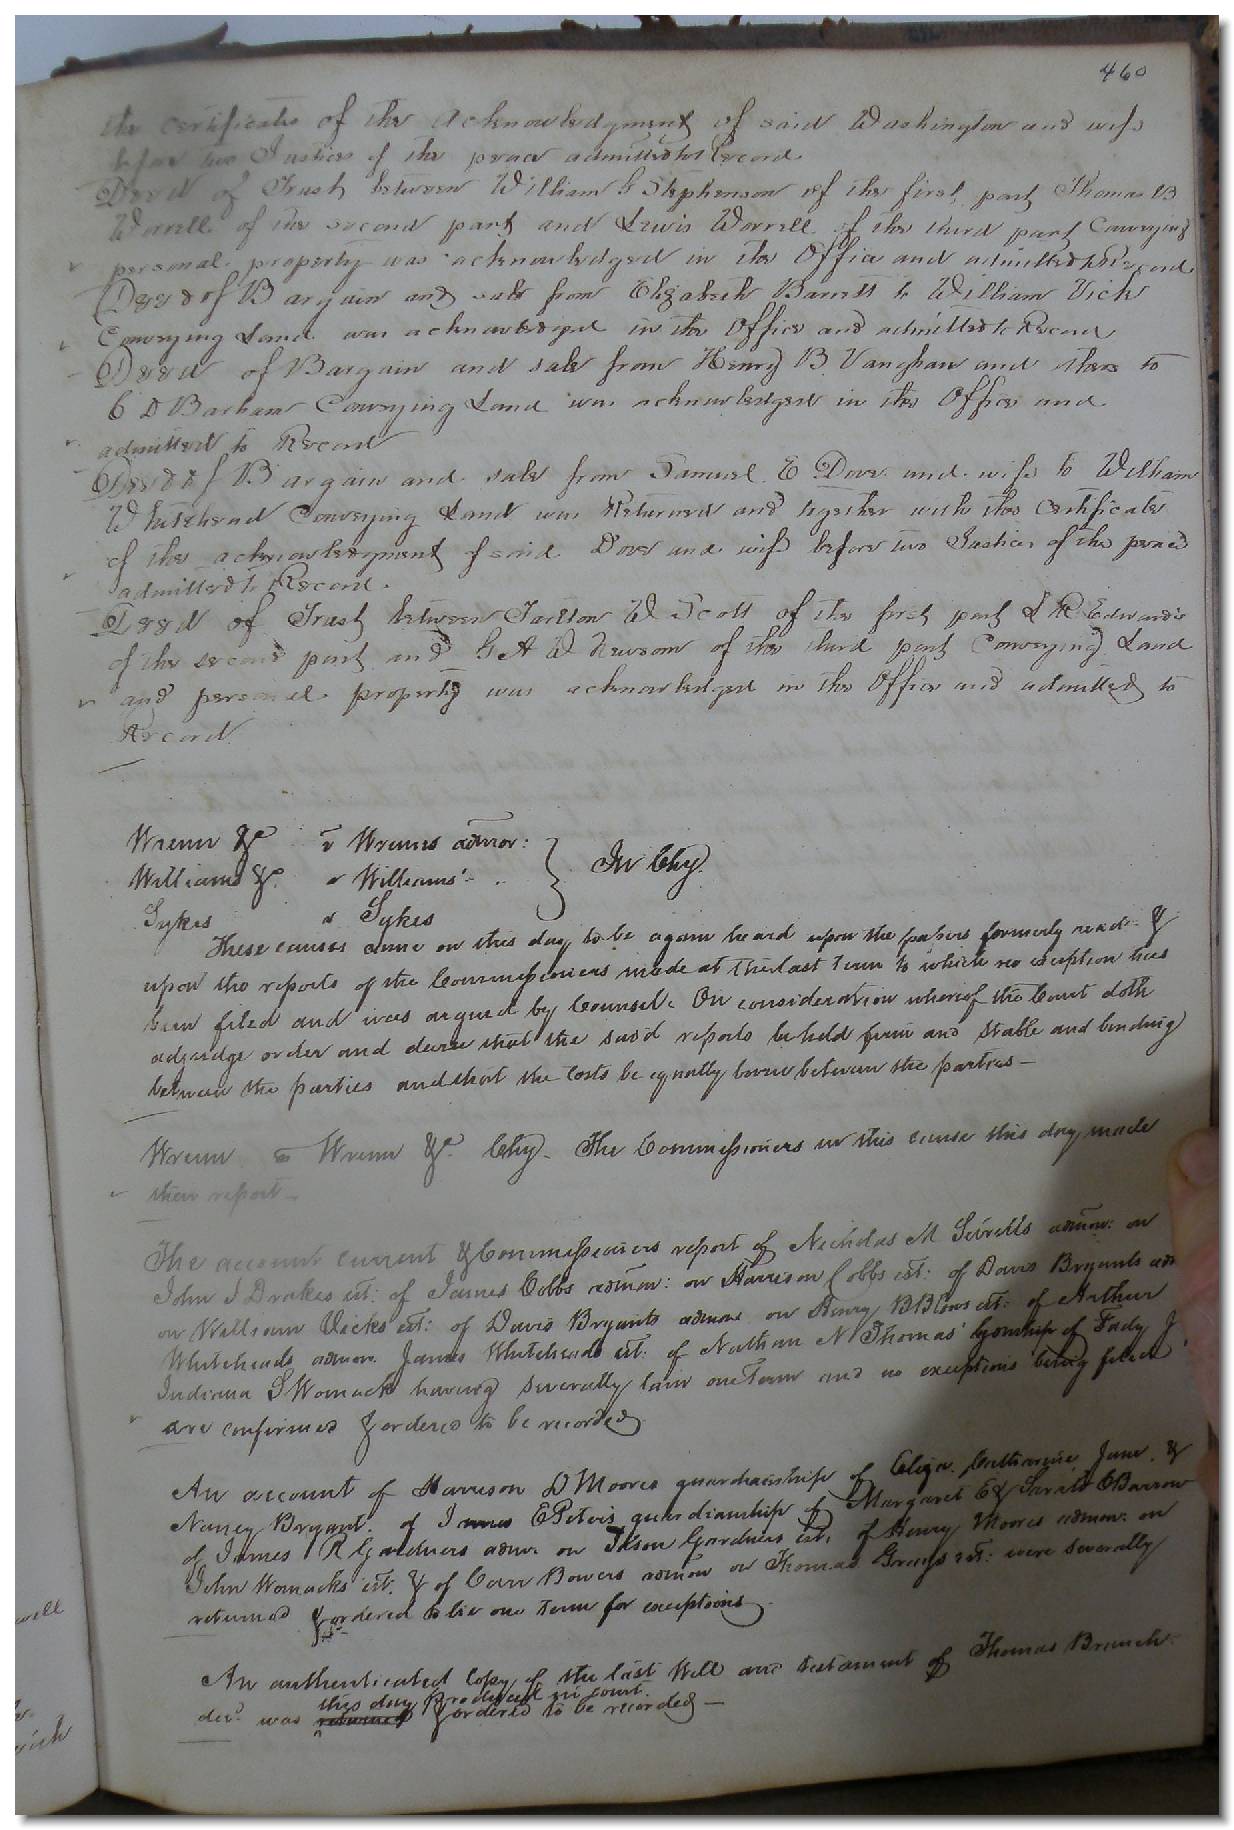 460
the certificate of the acknowledgment of said Washington and wife
before two Justices of the peace admitted to Record
Deed of Trust between William G Stephenson of the first part Thomas B
Worrell of the second part and Lewis Worrell of the third part Conveying
personal property was acknowledged in the Office and admitted to Record
Deed of Bargain and sale from Elizabeth Barrett to William Vick
Conveying Land was acknowledged in the Office and admitted to Record
Deed of Bargain and sale from Henry B. Vaughan and others to
C D Barham Conveying Land was acknowledged in the Office and
admitted to Record
Deed of Bargain and sale from Samuel E Dove and wife to William
Whitehead Conveying Land was Returned and together with the Certificate
of the acknowledgment of said Dove and wife before two Justices of the peace
admitted to Record.
Deed of Trust between Tarlton W Scott of the first part L R Edwards
of the second part and G A W Newsom of the third part Conveying Land
and personal property was acknowledged in the Office and admitted to
Record.
Wrenn &c v Wrenns admor:
Williams &c. v Williams' } In Chy.
Sykes v Sykes
These causes came on this day to be again heard upon the papers formerly read &
upon the reports of the Commissioners made at the last Term to which no exception has
been filed and was argued by Counsel. On consideration whereof the Court doth
adjudge order and decree that the said reports be held firm and stable and binding
between the parties and that the costs be equally borne between the parties —
Wrenn v Wrenn &c. Chy. The Commissioners in this cause this day made
their report —
The account current & Commissioners report of Nicholas M Sebrells admon: on
John J Drakes est: of James Cobbs admon: on Harrison Cobbs est: of Davis Bryants adm
on William Vicks est: of Davis Bryants admon on Henry B Blows est: of Arthur
Whiteheads admon. James Whiteheads est: of Nathan N Thomas' gdnship of
Indiana S Womack having severally lain one Term and no exceptions being filed
are confirmed & ordered to be recorded
An account of Harrison D Moores guardianship of Eliza. Catharine Jane. &
Nancy Bryant. of James E Peters guardianship of Margaret E & Sarah E Barrow
of James R Gardners admn. on Gardners est. of Henry Moores admon: on
John Womacks est. & of Carr Bowers admon on Thomas Grays est: were severally
returned & ordered to lie one term for exceptions.
An authenticated Copy of the last Will and testament of Thomas Branch
this day produced in court
decd. was returned & ordered to be recorded —